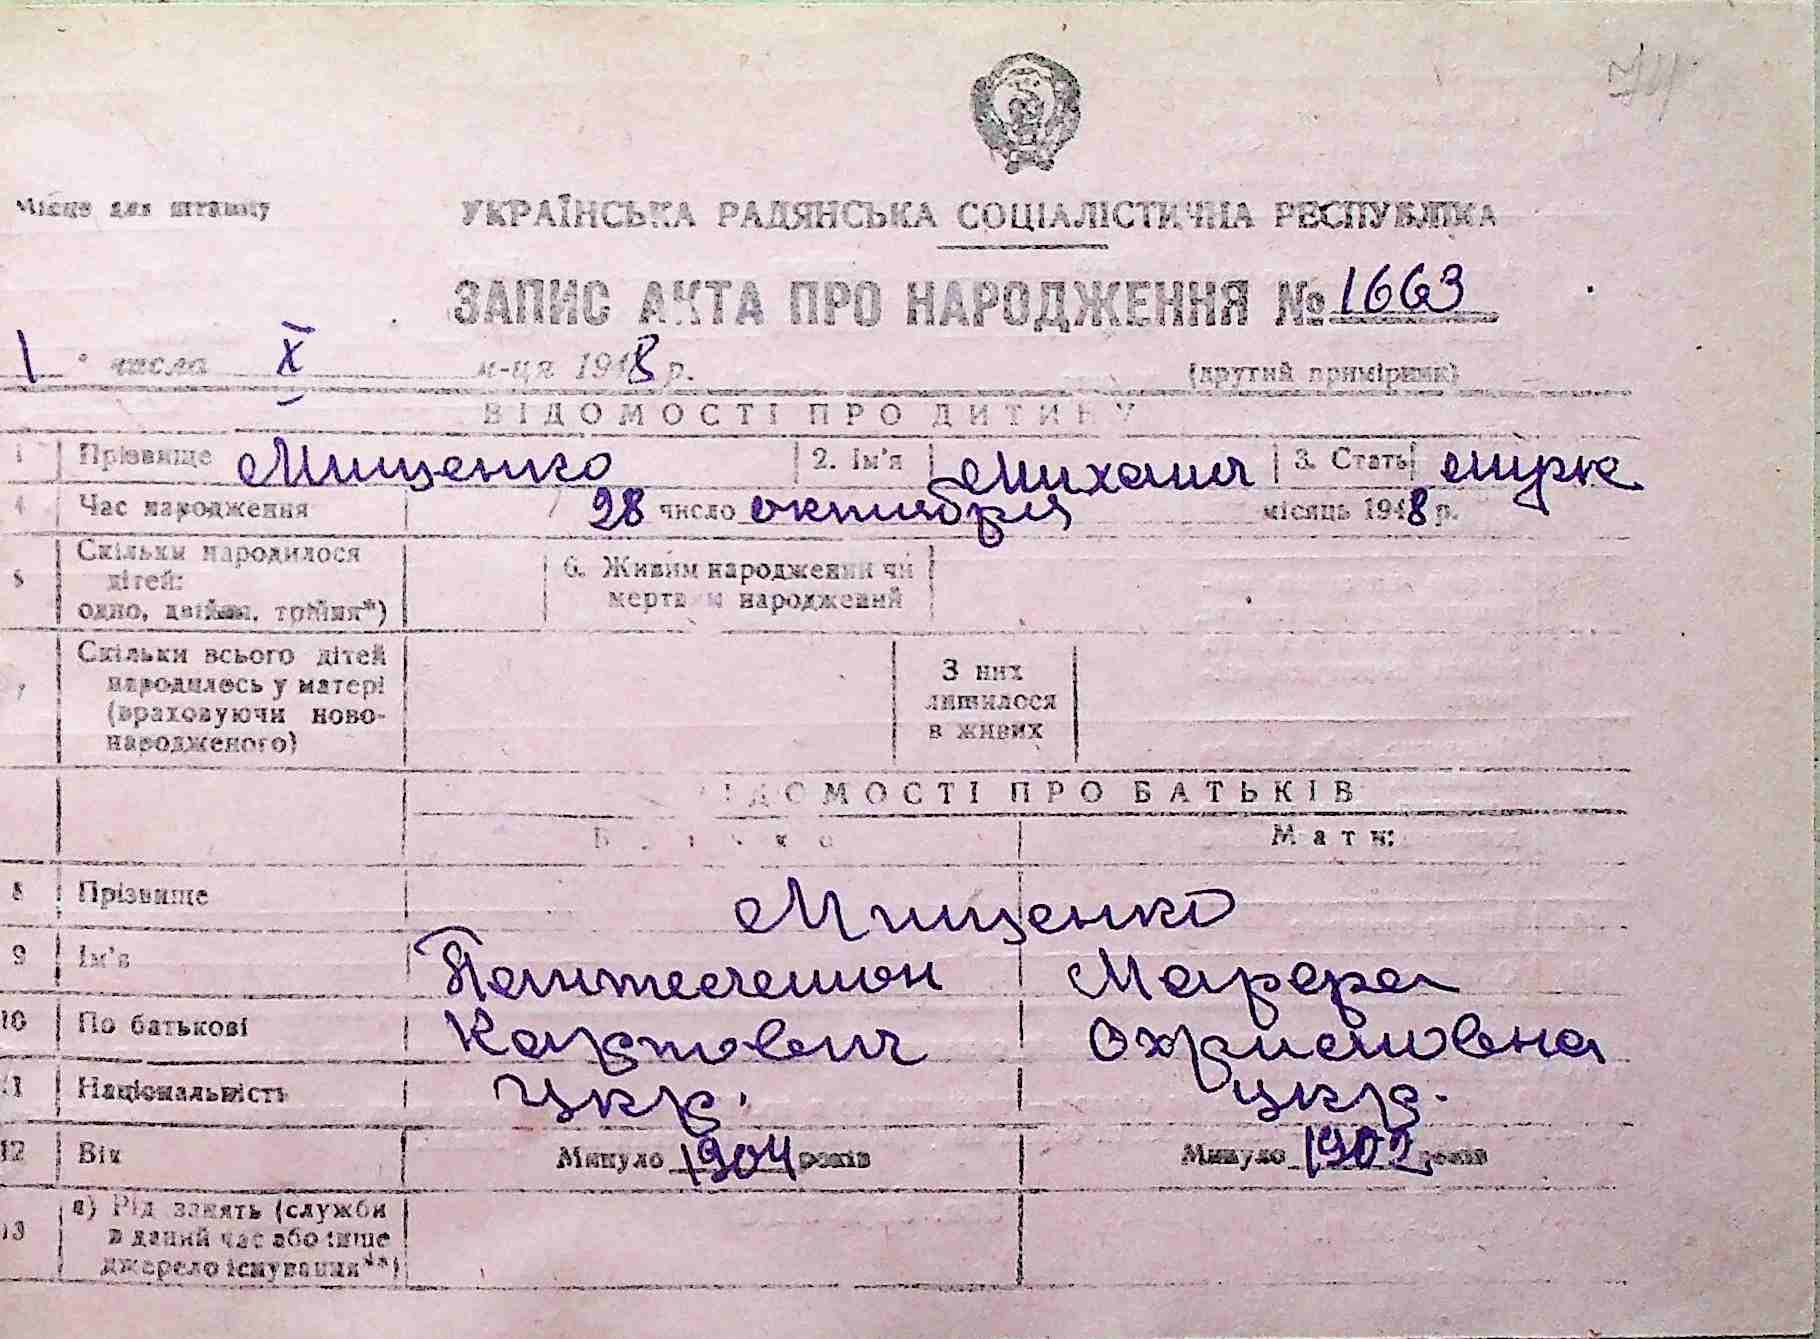 Місце для штампу
УКРАЇНСЬКА РАДЯНСЬКА СОЦІАЛІСТИЧНА РЕСПУБЛІКА
ЗАПИС АКТА ПРО НАРОДЖЕННЯ № 1663
1 числа X м-ця 1948 р. (другий примірник)
ВІДОМОСТІ ПРО ДИТИНУ
1 Прізвище Мищенко 2. Ім'я Михаил 3. Стать мужс
4 Час народження 28 число октября місяць 1948 р.
5 Скільки народилося дітей: одно, двійня, трійня*) 6. Живим народжений чи мертвим народжений
7 Скільки всього дітей народилось у матері (враховуючи новонародженого) З них лишилося в живих
ВІДОМОСТІ ПРО БАТЬКІВ
Батько Мати:
8 Прізвище Мищенко
9 Ім'я Пантелеимон Марфа
10 По батькові Карпович
11 Національність Укр. укр.
12 Вік Минуло 1904 років Минуло 1902 років
13 а) Рід занять (служби в даний час або інше джерело існування**)